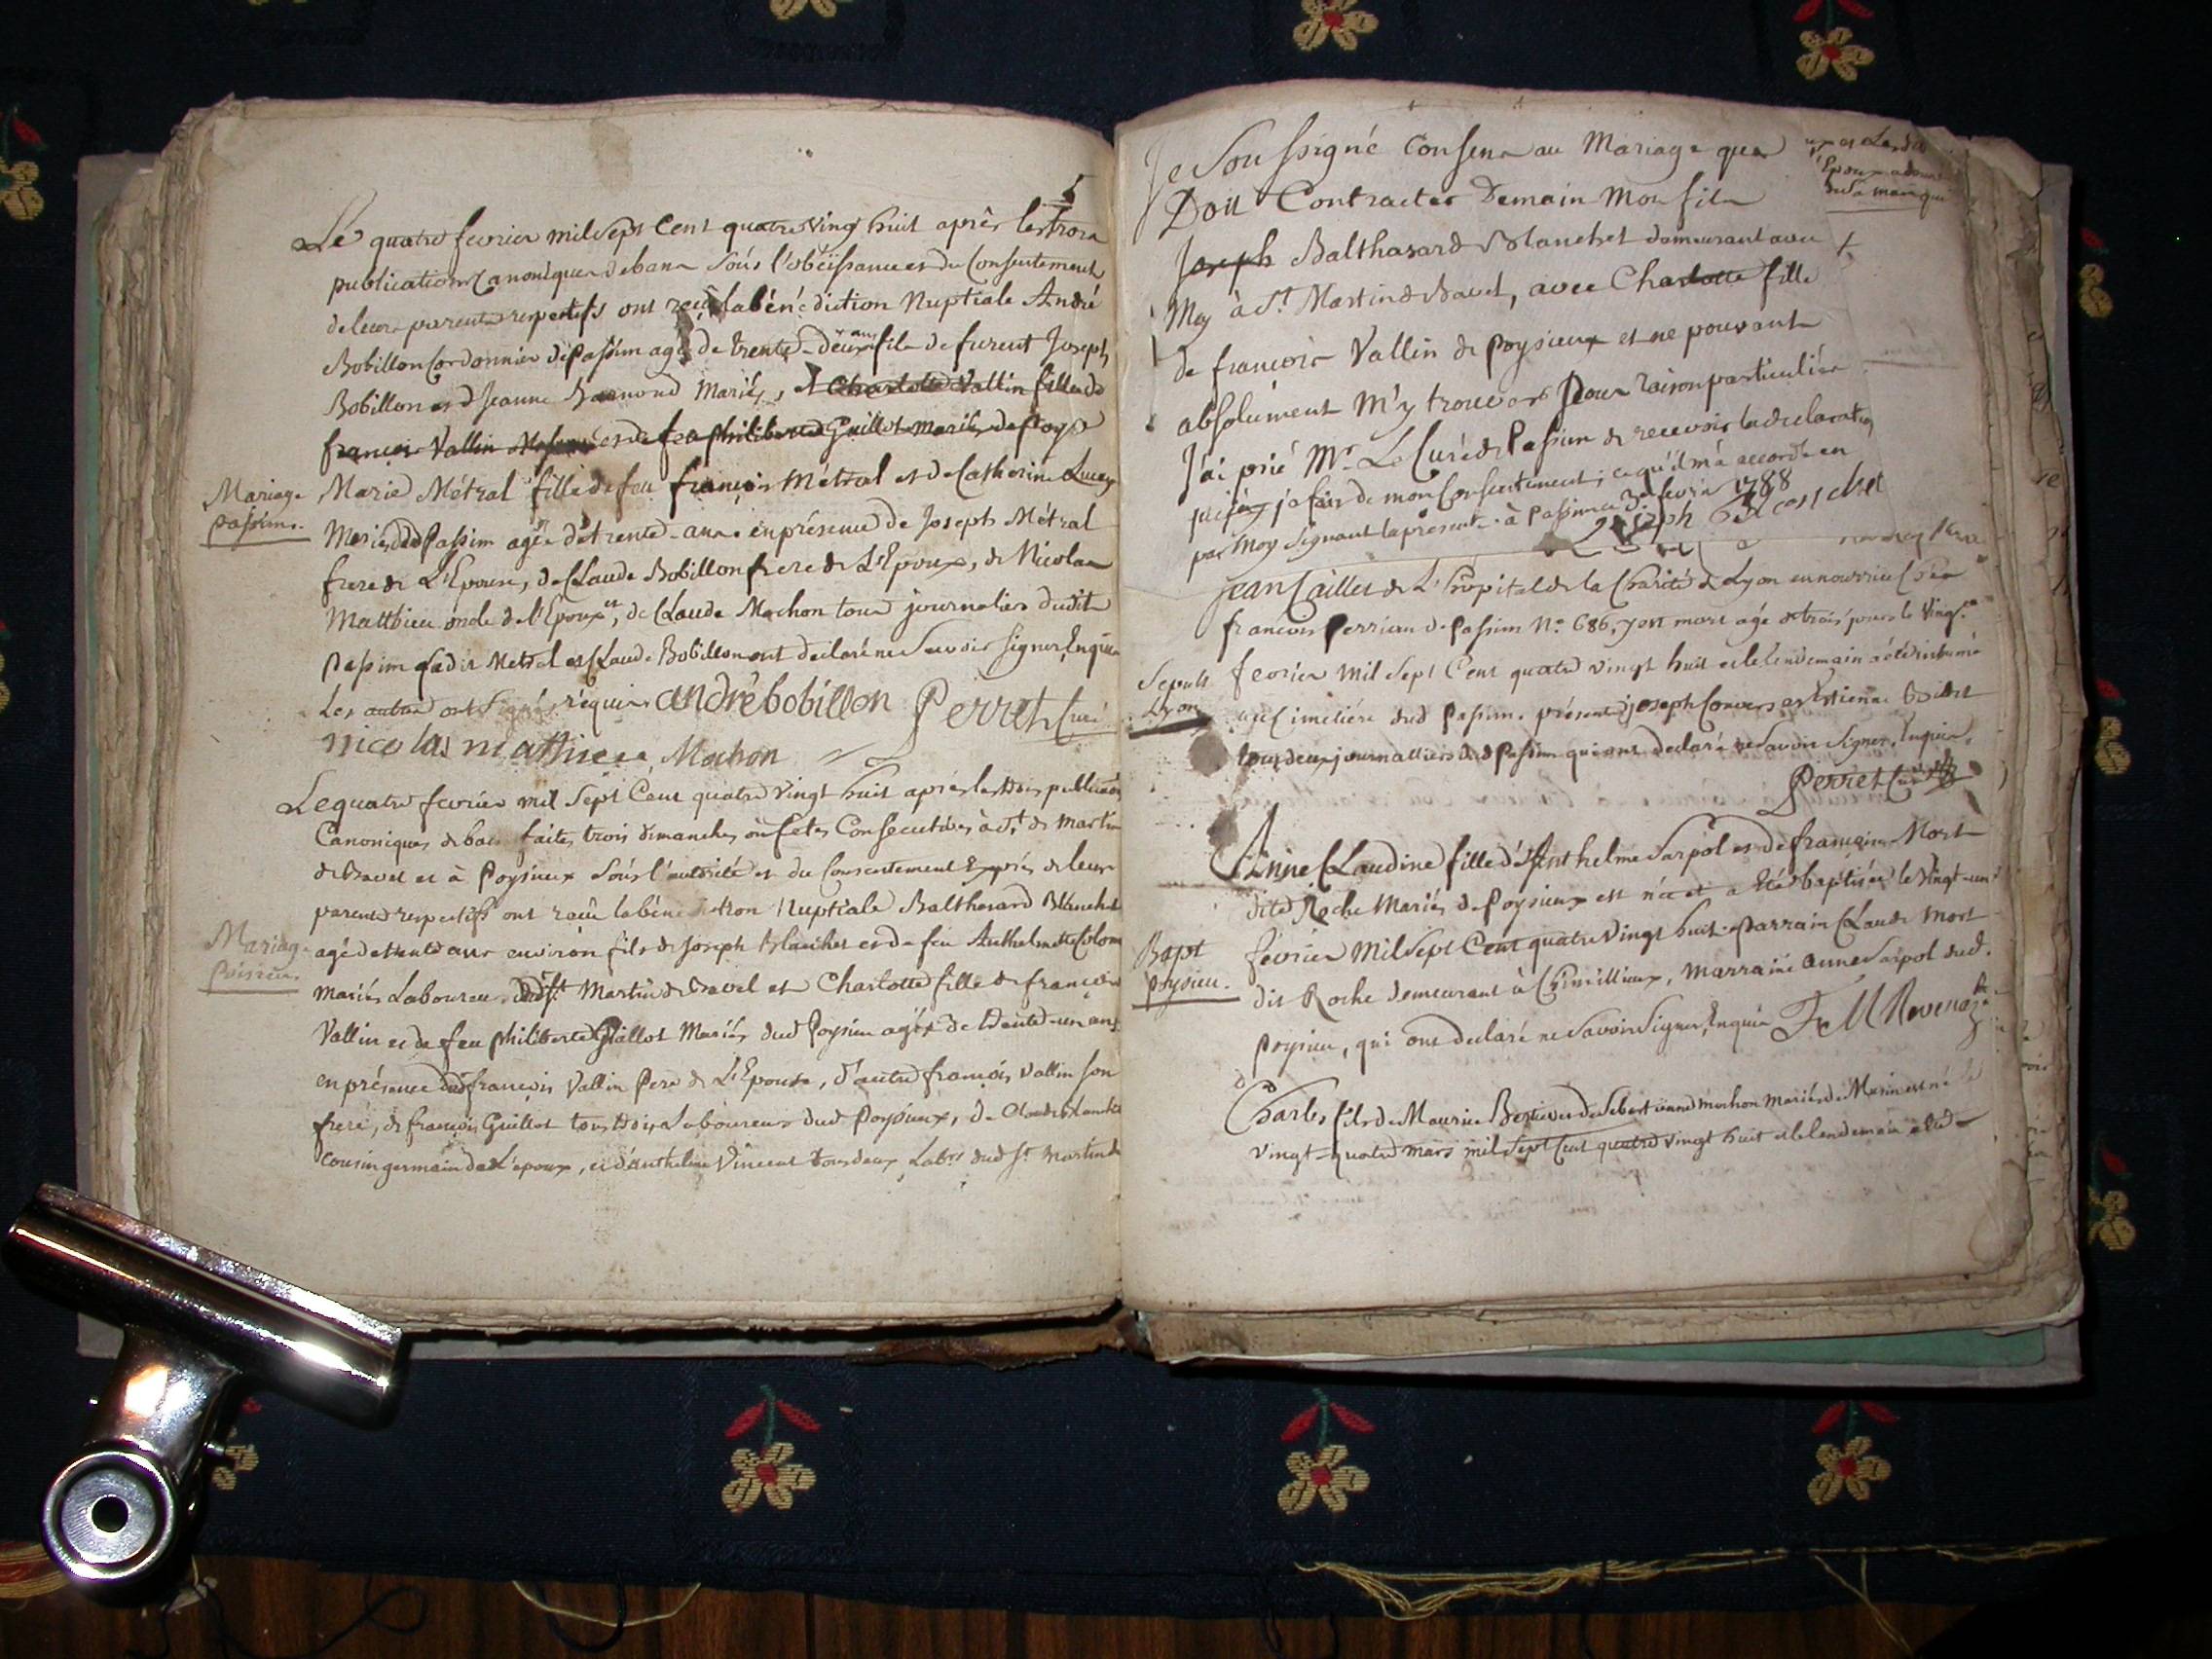 Le quatre fevrier mil sept Cent quatre ving huit après les trois
publications Canoniques de bans sous l'obeïssance et du Consentement
de leurs parents respectifs ont reçu la bénédiction Nuptiale André
Bobillon Cordonnier de Passin agé de trente-deux ans fils de furent Joseph
Bobillon et de Jeanne Mariés, et Charlotte Vallin fille de
françois Vallin et de feu philiberte Guillot mariés de
Mariage
passin.
Marie Métral fille de feu françois Métral et de Catherine
Mariés de Passim agée de trente-ans. en présence de Joseph Métral
frere de L'Epouse, de Claude Bobillon frere de L'Epoux, de Nicolas
Matthieu oncle de l'Epoux, et de Claude Mochon tous journaliers dudit
Passim ledit Metral et Claude Bobillon ont declaré ne Savoir signer, Enquis
Les autres ont Signé réquis andré bobillon Perret Curé
nicolas mathieu Mochon
Le quatre fevrier mil sept Cent quatre vingt huit après les trois publications
Canoniques de bans faites trois dimanches ou fetes Consecutives à St de Martin
de Bavel et à Poysieux sous l'autorité et du Consentement Exprès de leurs
parents respectifs ont reçûe la bénédiction Nuptiale Balthasard Blanchet
Mariage
agé de trente ans environ fils de Joseph Blanchet et de feu Anthelmette Colomb
mariés Laboureu. dud St Martin de Bavel et Charlotte fille de françois
Vallin et de feu philiberte Guillot Mariés dud Poysieu agée de trente-un ans
en présence dud françois Vallin Pere de L'Epouse, d'autre françois Vallin son
frere, de françois Guillot tous trois Laboureurs dud Poysieux, de Claude Blanchet
Cousin germain de L'époux, et d'anthelme Vincent tous deux Labrs dud St Martin de
Je Soussigné Consens au Mariage que
Doit Contracter Demain Mon fils
Joseph Balthasard Blanchet demeurant avec
Moy à St. Martin de Bavel, avec Charlotte fille
de françois Vallin de Poysieux et ne pouvant
absolument M'y trouver Pour raison particulière
J'ai prié Mr. Le Curé de Passim de recevoir la declaration
que je fais de mon Consentement; ce qu'il m'a accordé en
par Moy signant la présente. à Passim ce 3e fevrier 1788
Jean Caillet de L'hôpital de la Charité de Lyon en nourrice chez
francois Perrieru de Passim No. 686, y est mort agé de trois jours le Vingt
Sepult
Lyon
fevrier mil sept Cent quatre vingt huit et le lendemain a été inhumé
au Cimetiére dud Passim. présents joseph Convers et Estienne
tous deux journalliers dud Passim qui ont declaré ne Savoir Signer. Enquis.
Perret Curé
Anne Claudine fille d'Anthelme Sarpol et de françoise Mort
dite Roche Mariés de Poysieux est née et a été baptisée le Vingt-un
Bapt
poysieu.
février Mil Sept Cent quatre Vingt huit. Parrain Claude Mort
dit Roche demeurant à Chimillieux, Marraine Anne Sarpol dud.
poysieu, qui ont declaré ne Savoir Signer, Enquis
Charles fils de Maurice et de Sebastienne Mochon Mariés de Marin est né le
vingt-quatre mars mil sept Cent quatre vingt huit et le lendemain a été